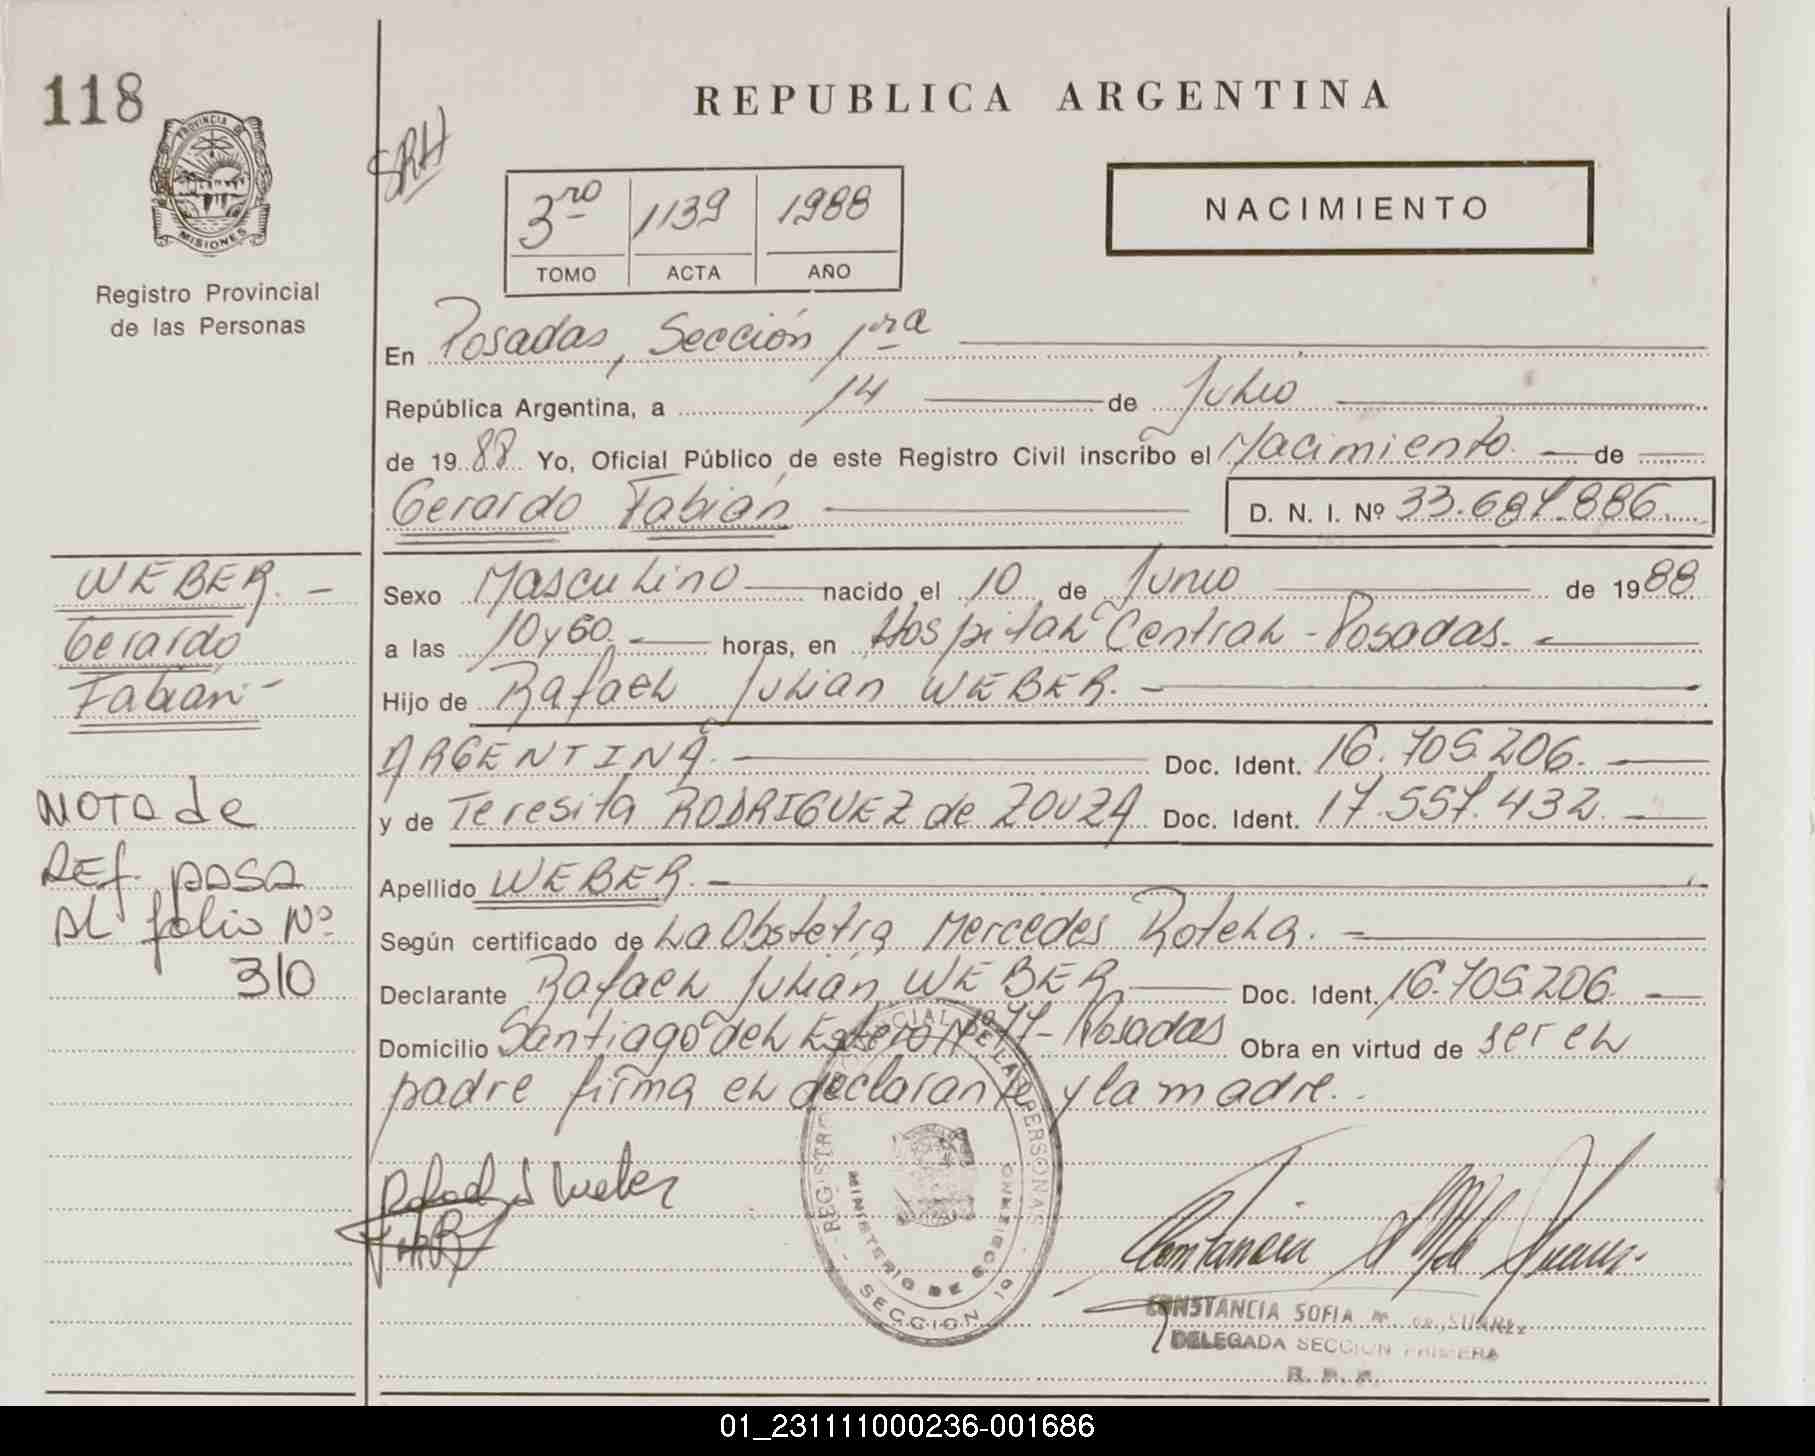 118
REPUBLICA ARGENTINA
PROVINCIA DE
MISIONES
Registro Provincial
de las Personas
SRH
3ro 1139 1988
TOMO ACTA AÑO
NACIMIENTO
En Posadas, Sección 1ra
República Argentina, a 14 de Julio
de 1988 Yo, Oficial Público de este Registro Civil inscribo el Nacimiento. de
Gerardo Fabián
D. N. I. Nº 33.687.886
WEBER.-
Gerardo
Fabián-
Sexo Masculino nacido el 10 de Junio de 1988
a las 10y60. horas, en Hospital Central - Posadas.
Hijo de Rafael Julian WEBER.
ARGENTINA. Doc. Ident. 16.705.206.
y de Teresita RODRIGUEZ de ZOUZA Doc. Ident. 17.557.432.
NOTA de
REf. pasa
al folio Nº
310
Apellido WEBER.
Según certificado de La Obstetra Mercedes Rotela.
Declarante Rafael Julián WEBER Doc. Ident. 16.705.206.
Domicilio Santiago del Estero Nº 77 - Posadas Obra en virtud de ser el
padre firma el declarante y la madre.
Rafael J Weber
REGISTRO PERSONAS
MINISTERIO DE GOBIERNO
SECCION 1a
CONSTANCIA SOFIA M. de SUAREZ
DELEGADA SECCION PRIMERA
R. P. P.
01_231111000236-001686